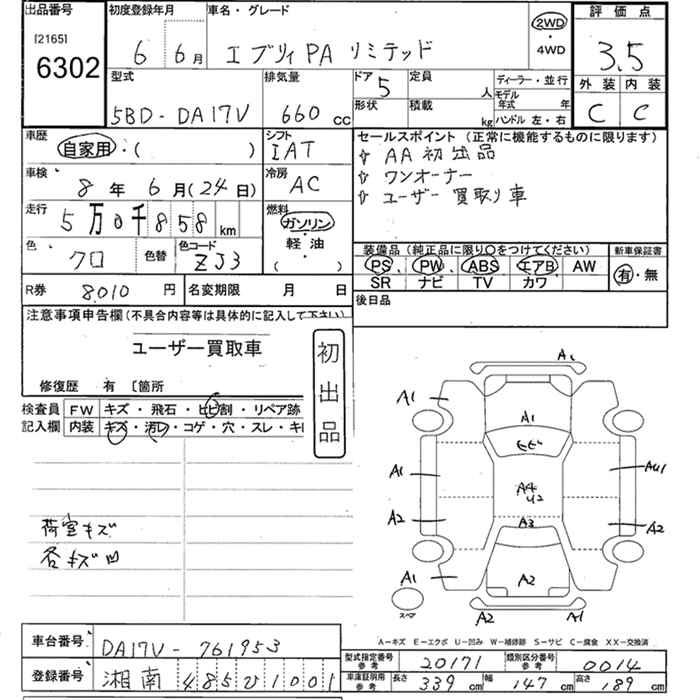 出品番号
[2165]
6302
初度登録年月
6 6月
車名・グレード
エブリィPA リミテッド
2WD
・
4WD
評価点
3.5
外装 内装
C C
型式
5BD-DA17V
排気量
660 cc
ドア 5
形状
定員 人
積載 kg
ディーラー・並行
モデル
年式 年
ハンドル 左・右
車歴
自家用・( )
シフト
IAT
車検
8年 6月(24日)
冷房
AC
走行
5万0千858 km
燃料
ガソリン
軽油
( )
色
クロ
色替
色コード
ZJ3
セールスポイント (正常に機能するものに限ります)
⇧ AA初出品
⇧ ワンオーナー
⇧ ユーザー買取り車
装備品(純正品に限り○をつけてください)
PS、 PW、 ABS エアB AW
SR ナビ TV カワ
新車保証書
有・無
R券 8010 円
名変期限 月 日
後日品
注意事項申告欄(不具合内容等は具体的に記入して下さい)
ユーザー買取車
修復歴 有 〔箇所
初出品
検査員
記入欄
FW キズ・飛石・ヒビ割・リペア跡
内装 キズ・汚レ・コゲ・穴・スレ・キレ
荷室キズ
各キズ凹
A1
A1
A1
A1
A2
A1
EEE
A4
U2
A3
A2
AU1
A2
A2
A1
スペア
A―キズ E―エクボ U―凹み W―補修跡 S―サビ C―腐食 XX―交換済
車台番号
DA17V-761953
登録番号
湘南 485い1001
型式指定番号
参考
20171
類別区分番号
参考
0014
車庫証明用
参考
長さ 339 cm 幅 147 cm 高さ 189 cm